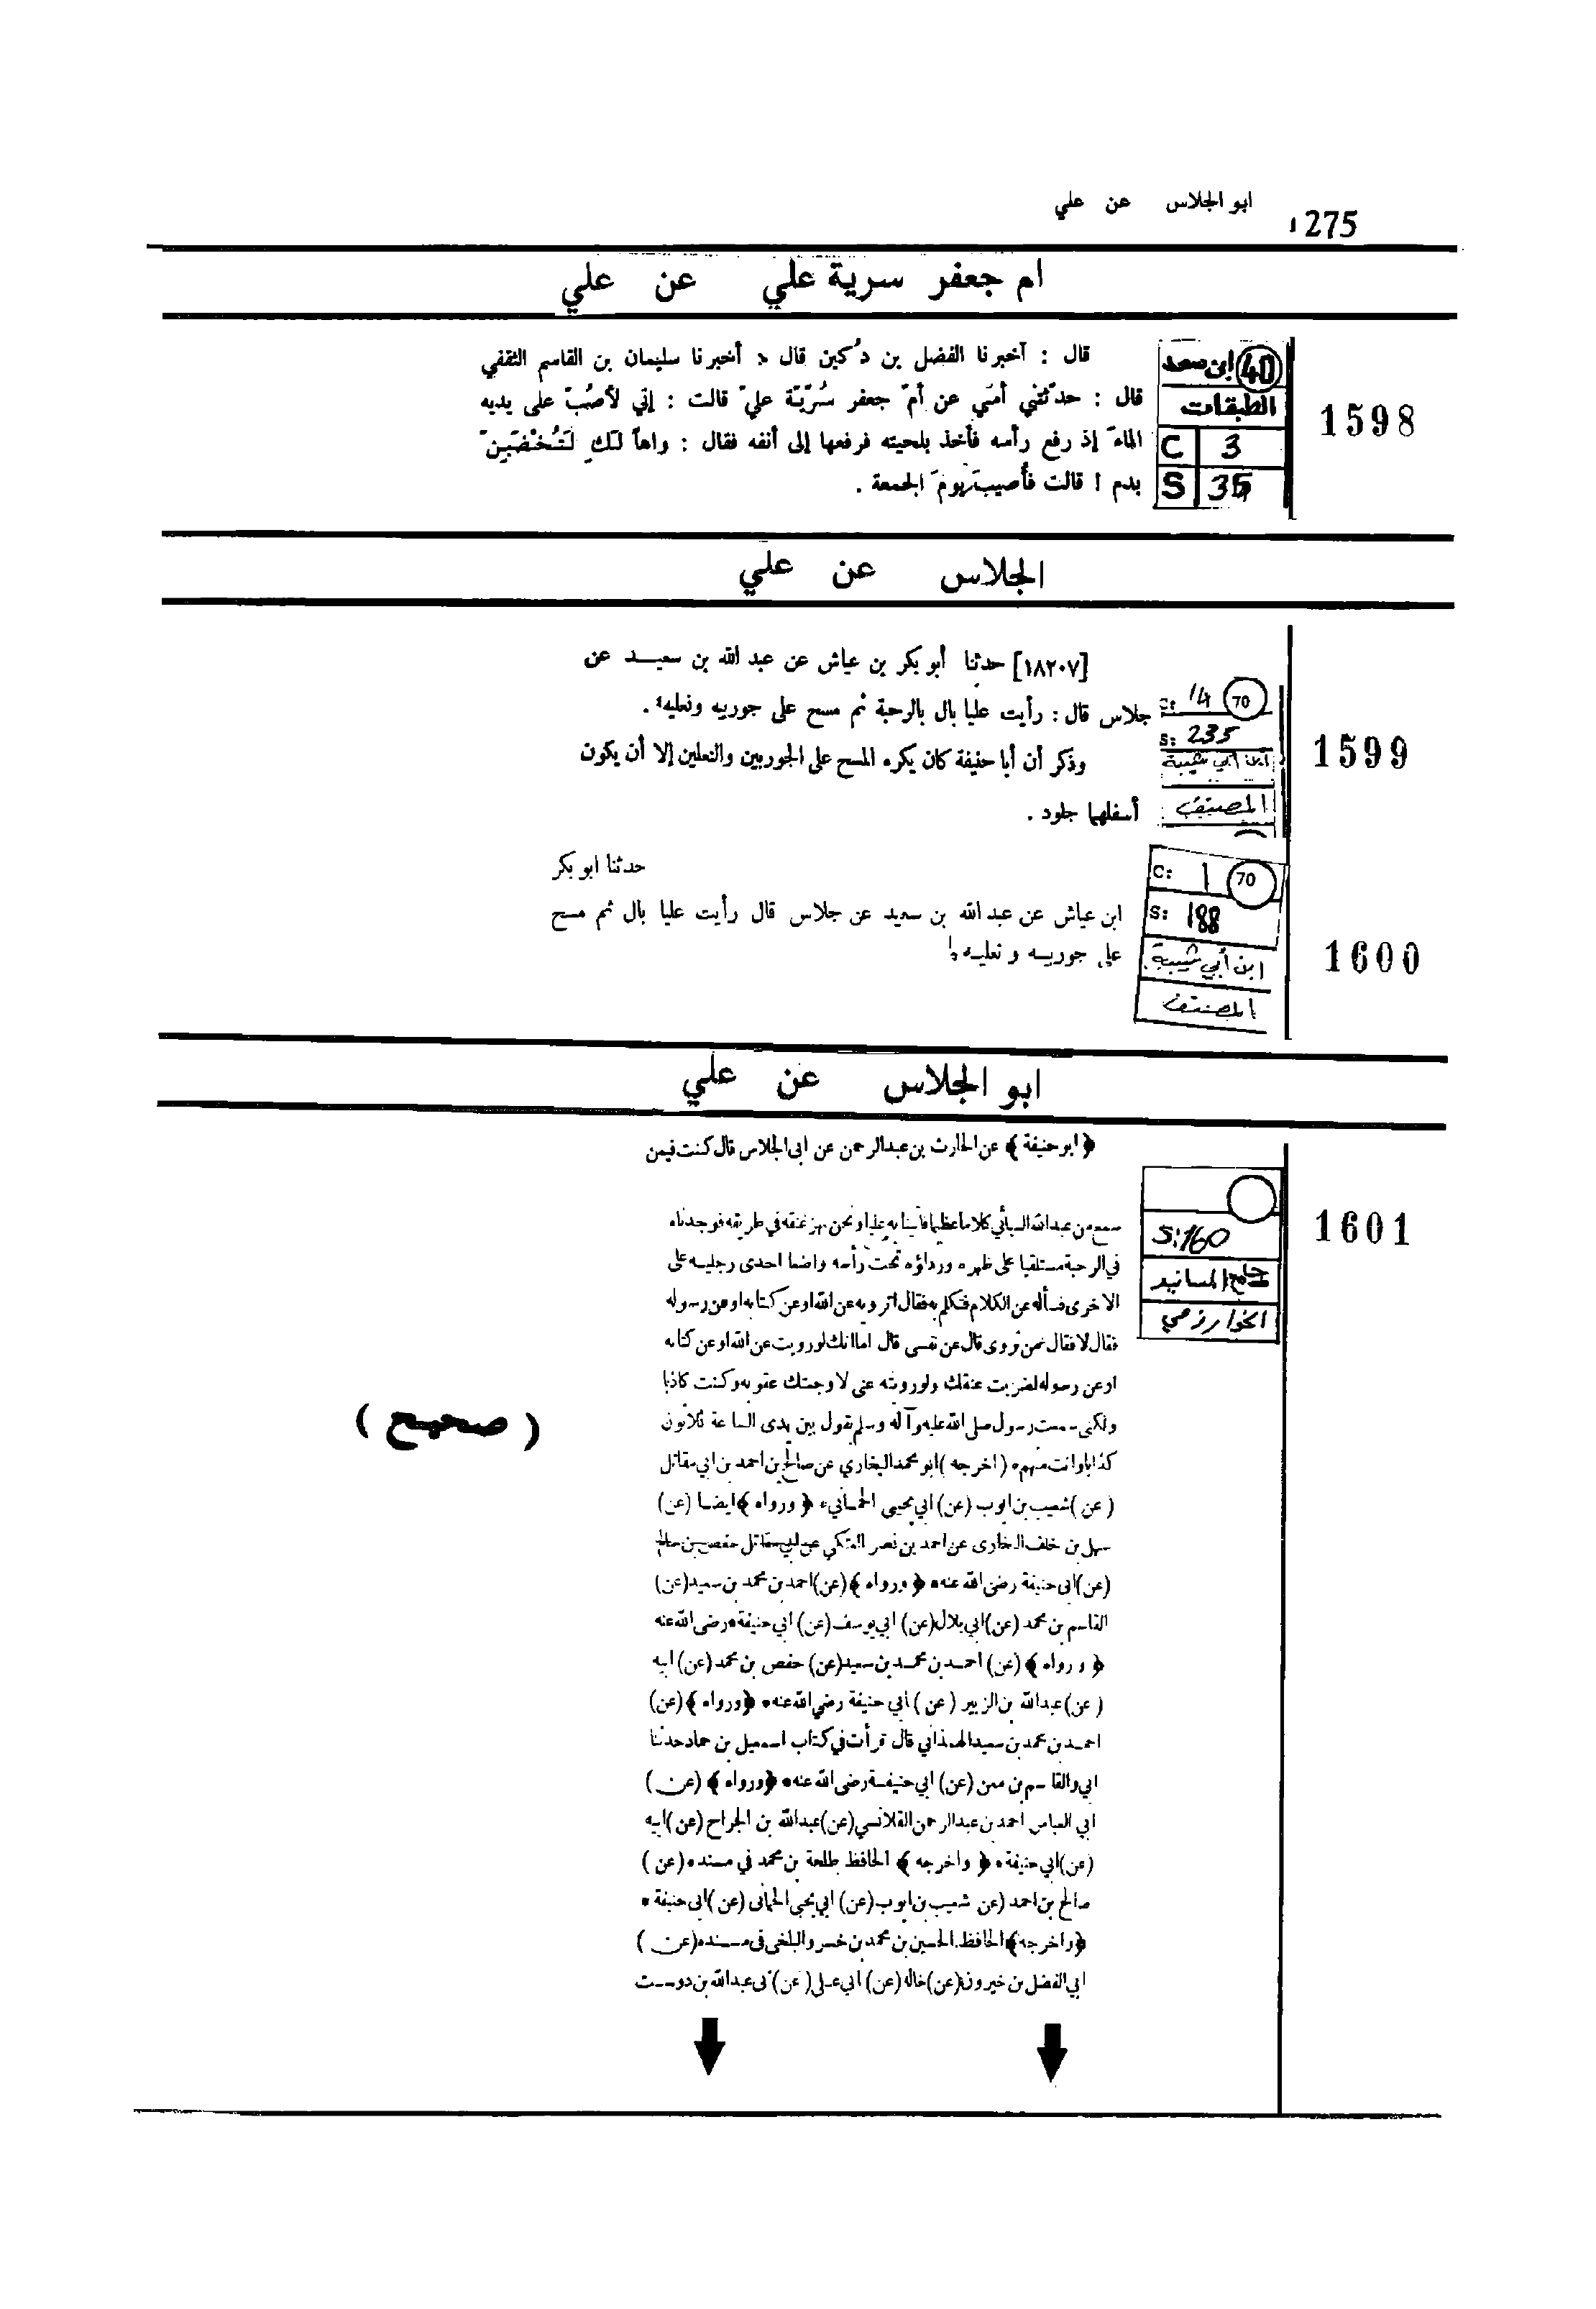 ابو الجلاس عن علي
1275
ام جعفر سرية علي عن علي
1598
40 ابن سعد
الطبقات
C 3
S 35
قال : أخبرنا الفضل بن دُكين قال : أخبرنا سليمان بن القاسم الثقفي
قال : حدّثتني أمّي عن أمّ جعفر سُرّيّة عليّ قالت : إني لأصُبّ على يديه
الماءَ إذ رفع رأسه فأخذ بلحيته فرفعها إلى أنفه فقال : واهاً لكِ لَتُخْضَبِنّ
بدم ! قالت فأُصيبَ يومَ الجمعة .
الجلاس عن علي
1599
C: 14 70
S: 235
ابن ابي شيبة
المصنف
[١٨٢٠٧] حدثنا أبو بكر بن عياش عن عبد الله بن سعيد عن
جلاس قال : رأيت عليا بال بالرحبة ثم مسح على جوربيه ونعليه .
وذكر أن أبا حنيفة كان يكره المسح على الجوربين والنعلين إلا أن يكون
أسفلهما جلود .
1600
C: 1 70
S: 188
ابن أبي شيبة
المصنف
حدثنا ابو بكر
ابن عياش عن عبد الله بن سعيد عن جلاس قال رأيت عليا بال ثم مسح
على جوربيه و نعليه
ابو الجلاس عن علي
1601
S: 160
جامع المسانيد
الخوارزمي
﴿ابو حنيفة﴾ عن الحارث بن عبدالرحمن عن ابى الجلاس قال كنت فيمن
سمع من عبدالله السبائي كلاما عظيما فأتينا به عليا ونحن نهز عنقه في طريقه فوجدناه
في الرحبة مستلقيا على ظهره ورداؤه تحت رأسه واضعا احدى رجليه على
الاخرى فسأله عن الكلام فتكلم به فقال اترويه عن الله او عن كتابه او عن رسوله
فقال لا فقال عمن تروى قال عن نفسى قال اما انك لو رويت عن الله او عن كتابه
او عن رسوله لضربت عنقك ولو رويته عنى لاوجعتك عقوبه وكنت كاذبا
ولكنى سمعت رسول صلى الله عليه وآله وسلم يقول بين يدى الساعة ثلاثون
كذابا وانت منهم * (اخرجه) ابو محمد البخاري عن صالح بن احمد بن ابي مقاتل
(عن) شعيب بن ايوب (عن) ابي يحيى الحماني * ﴿ورواه﴾ ايضا (عن)
سهل بن خلف البخارى عن احمد بن نصر العتكي عن ابي مقاتل حفص بن سالم
(عن) ابى حنيفة رضى الله عنه * ﴿ورواه﴾ (عن) احمد بن محمد بن سعيد (عن)
القاسم بن محمد (عن) ابي بلال (عن) ابي يوسف (عن) ابي حنيفة * رضى الله عنه
﴿ورواه﴾ (عن) احمد بن محمد بن سعيد (عن) حفص بن محمد (عن) ابيه
(عن) عبدالله بن الزبير (عن) أبي حنيفة رضي الله عنه * ﴿ورواه﴾ (عن)
احمد بن محمد بن سعيد الهمذاني قال قرأت في كتاب اسمعيل بن حماد حدثنا
ابي والقاسم بن معن (عن) ابي حنيفة رضى الله عنه * ﴿ورواه﴾ (عن)
ابي العباس احمد بن عبدالرحمن القلانسي (عن) عبدالله بن الجراح (عن) ابيه
(عن) ابي حنيفة * ﴿واخرجه﴾ الحافظ طلحة بن محمد في مسنده (عن)
صالح بن احمد (عن شعيب بن ايوب (عن) ابي يحيى الحمانى (عن) ابى حنيفة *
﴿واخرجه﴾ الحافظ الحسين بن محمد بن خسرو البلخى فى مسنده (عن)
ابي الفضل بن خيرون (عن) خاله (عن) ابي علي (عن) ابى عبدالله بن دوست
(صحيح)